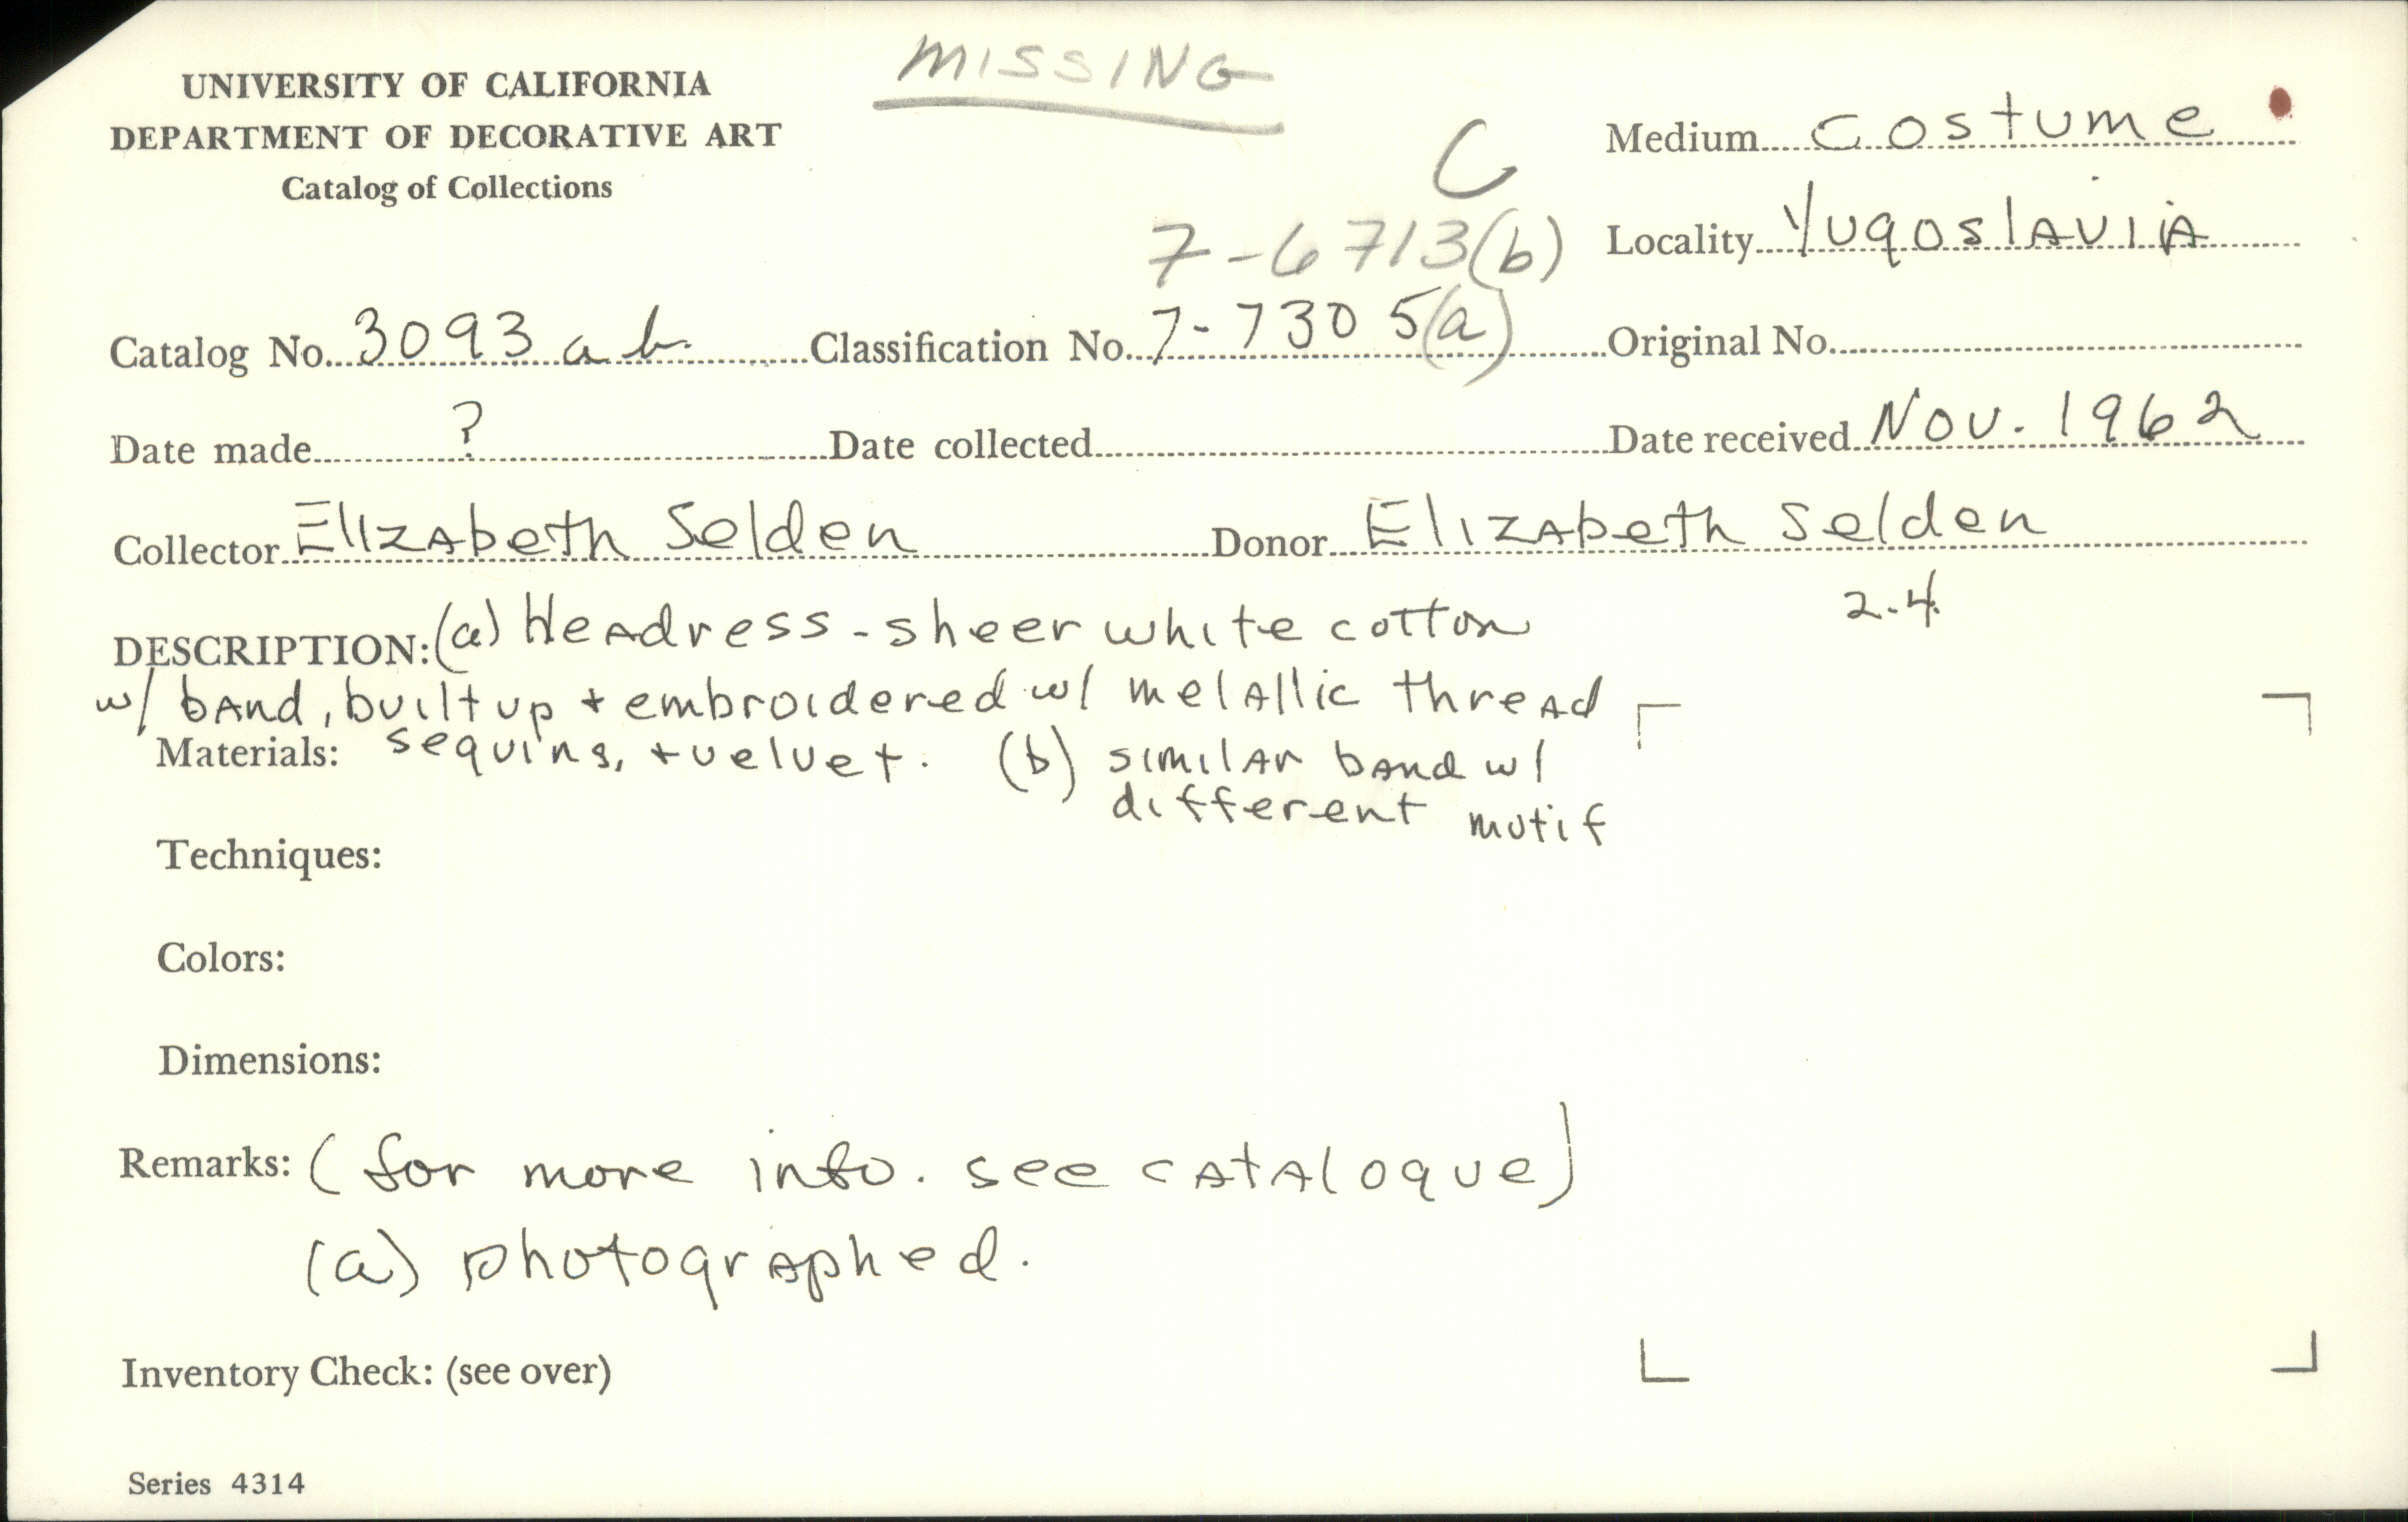 MISSING
UNIVERSITY OF CALIFORNIA
DEPARTMENT OF DECORATIVE ART
Catalog of Collections
Medium Costume
C
7-6713(b)
Locality Yugoslavia
Catalog No. 3093 a b. Classification No. 7-7305(a) Original No.
Date made ? Date collected Date received Nov. 1962
Collector Elizabeth Selden Donor Elizabeth Selden
2.4.
DESCRIPTION: (a) Headress - sheer white cotton
w/ band, built up + embroidered w/ melallic thread
Materials: sequins, + velvet. (b) similar band w/
different motif
Techniques:
Colors:
Dimensions:
Remarks: (for more info. see catalogue)
(a) photographed.
Inventory Check: (see over)
Series 4314